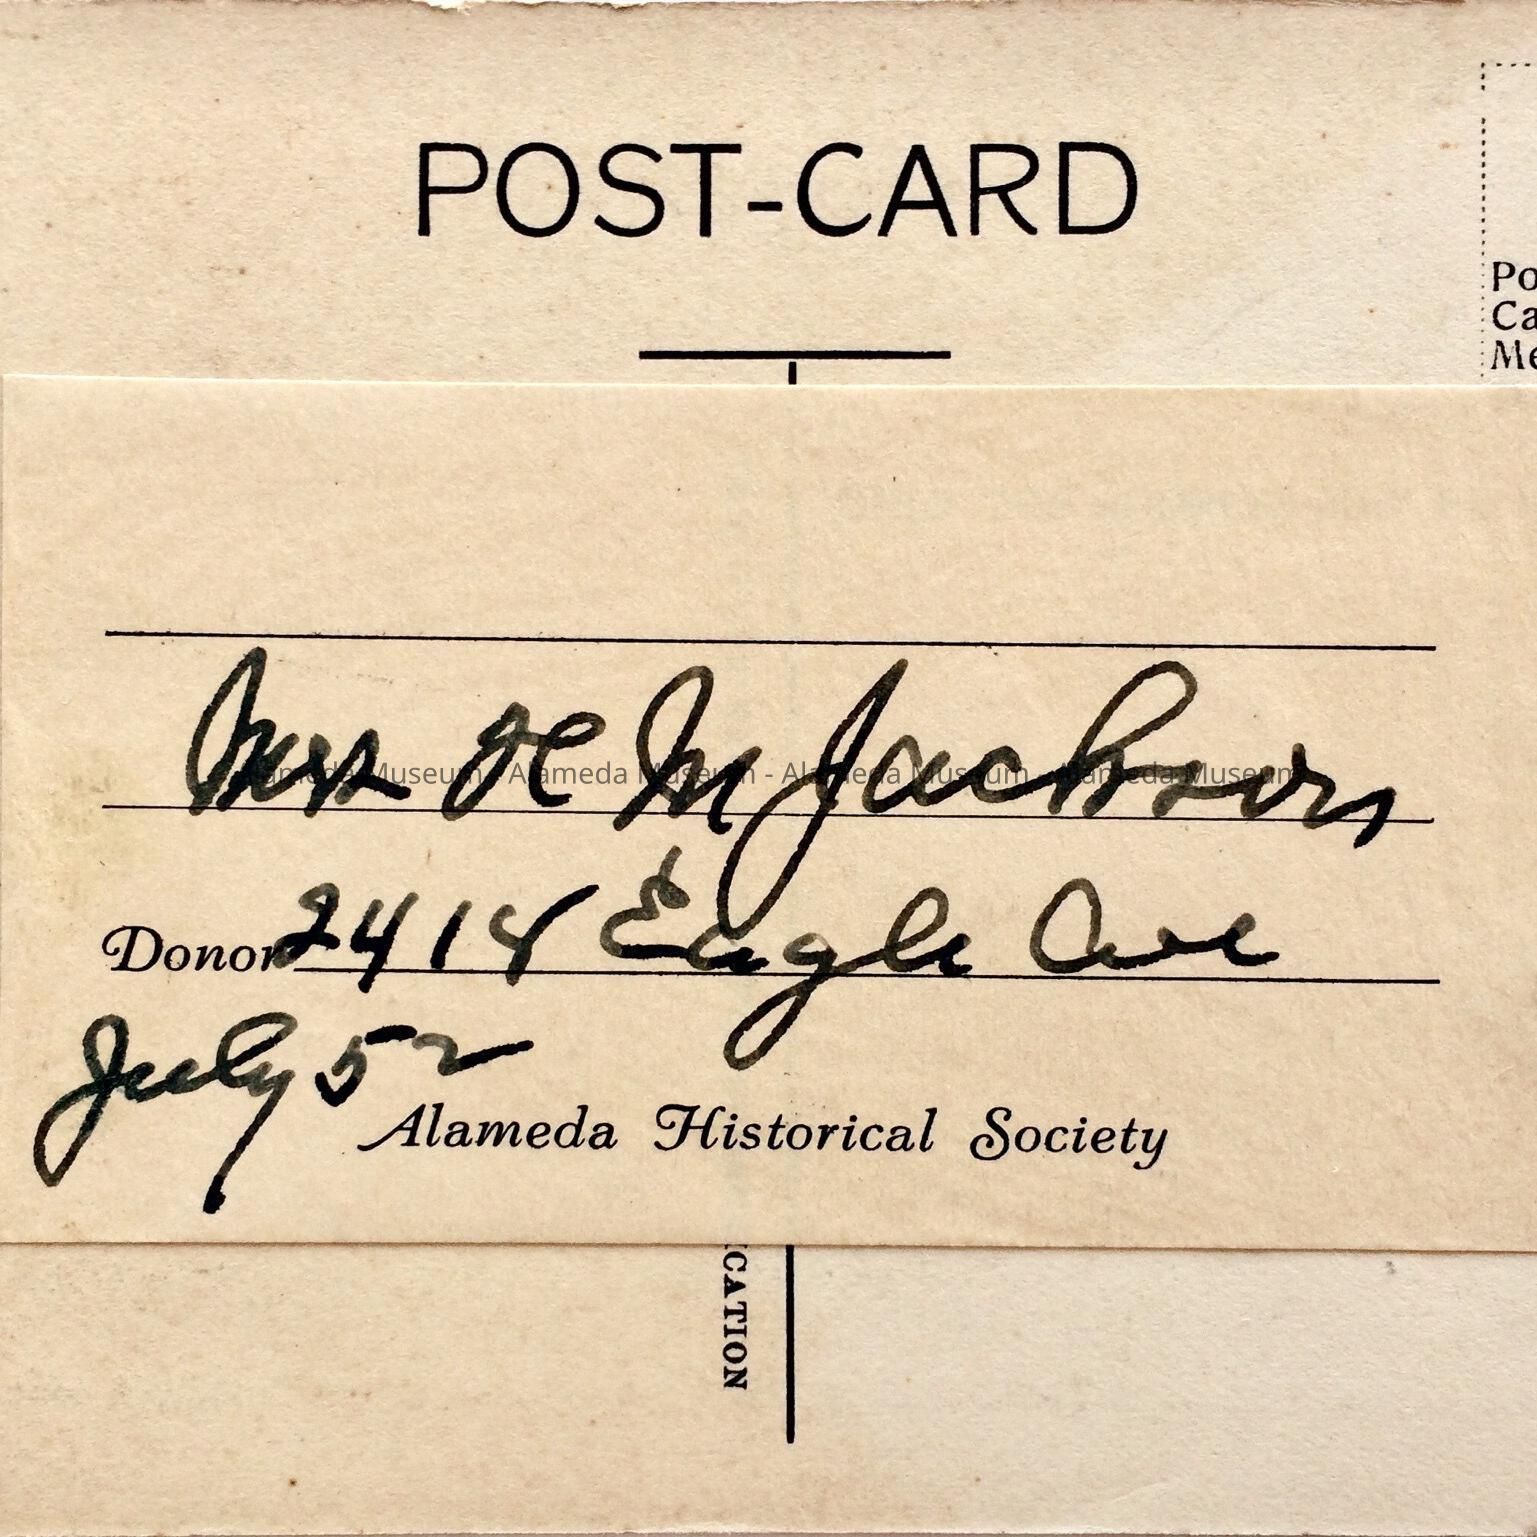 POST-CARD
Po
Ca
Me
Mrs H M Jackson
Alameda Museum - Alameda Museum - Alameda Museum - Alameda Museum
Donor 2418 Eagle Ave
July 52
Alameda Historical Society
CATION